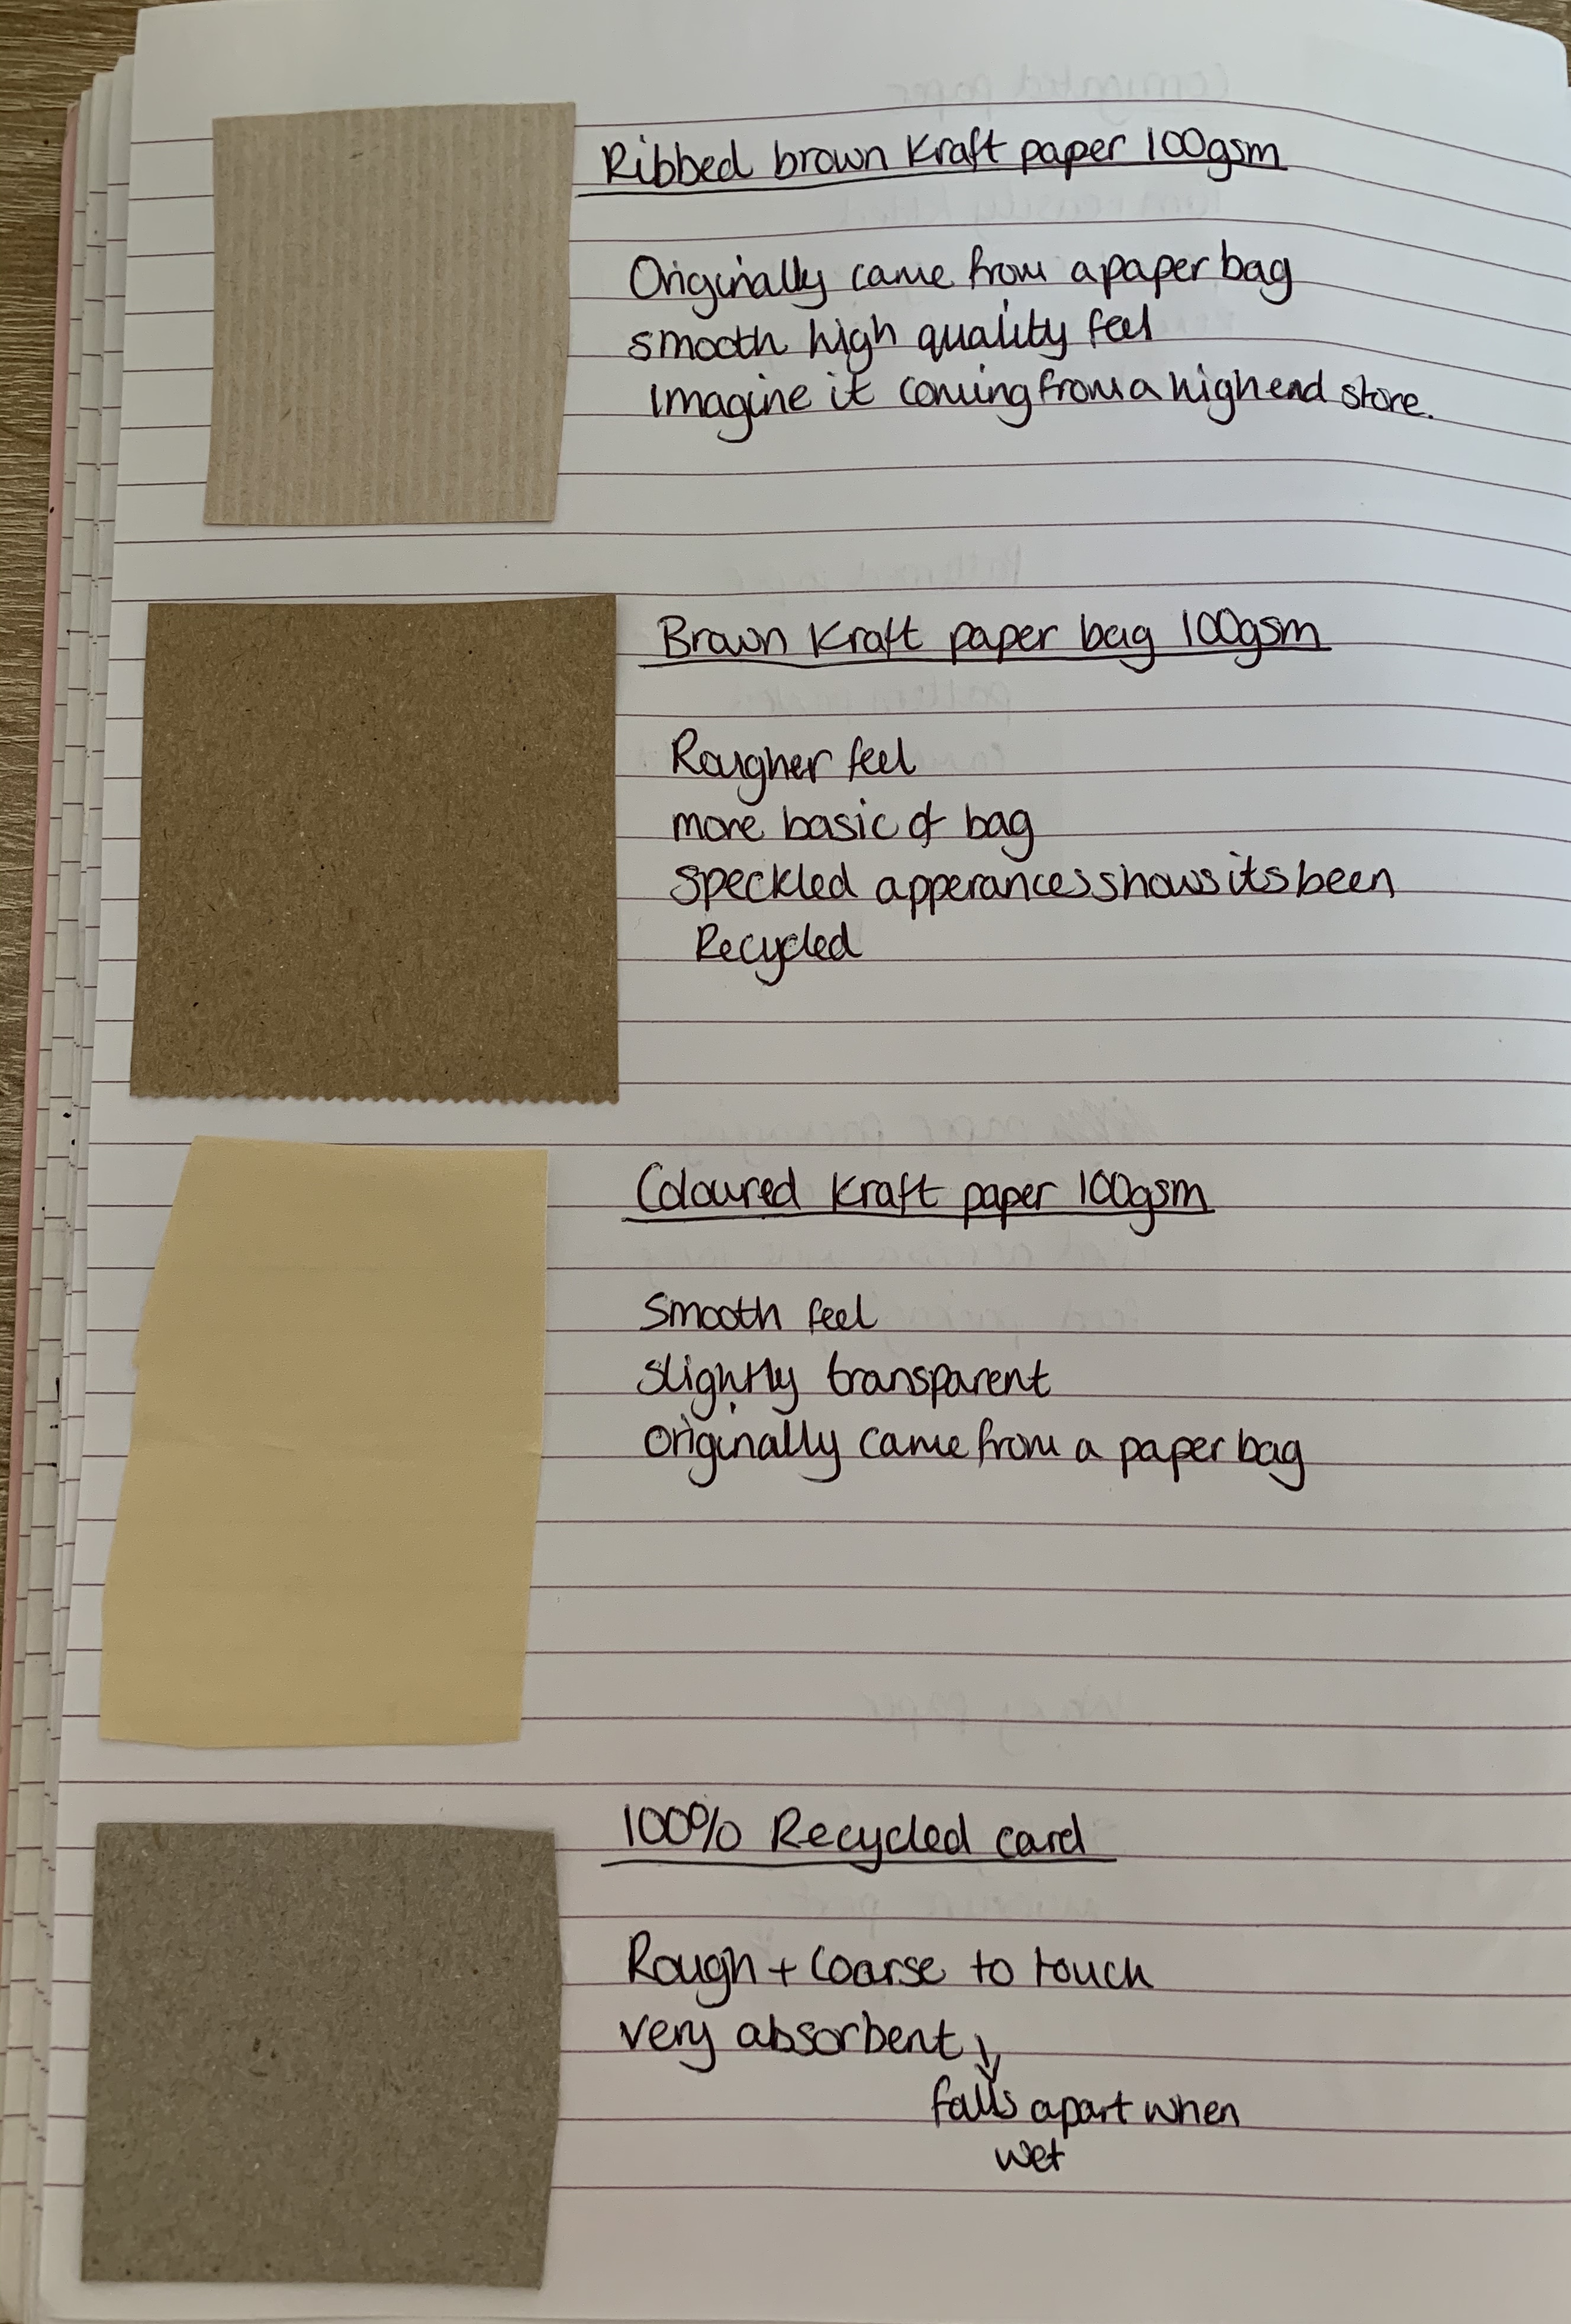 Ribbed brown Kraft paper 100gsm
Originally came from a paper bag
smooth high quality feel
Imagine it coming from a high end store.
Brown Kraft paper bag 100gsm
Rougher feel
more basic of bag
speckled apperances shows its been
Recycled
Coloured Kraft paper 100gsm
Smooth feel
slightly transparent
originally came from a paper bag
100% Recycled card
Rough + coarse to touch
very absorbent
falls apart when
wet